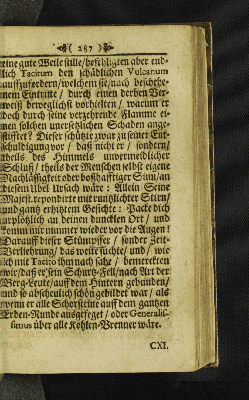 ( 287 )
eine gute Weile stille/ befehligten aber end-
lich Tacitum den schädlichen Vulcanum
auffzufordern/ welchem sie/ nach beschehe-
nem Eintritte/ durch einen derben Ver-
weiß beweglichst vorhielten/ warum er
doch durch seine verzehrende Flamme ei-
nen solchen unersetzlichen Schaden ange-
stifftet? Dieser schützte zwar zu seiner Ent-
schuldigung vor/ daß nicht er/ sondern/
theils des Himmels unvermeidlicher
Schluß/ theils der Menschen selbst eigene
Nachlässigkeit oder boßhafftiger Sinn/ an
diesem Ubel Ursach wäre: Allein Seine
Majest. repondirte mit runtzlichter Stirn/
und gantz erhitztem Gesichte: Packe dich
urplötzlich an deinen dunckten Ort/ und
komm mir nimmer wieder vor die Augen!
Darauff dieser Stümpffer/ sonder Zeit-
Verliehrung/ das weite suchte/ und/ wie
ich mit Tacito ihm nach sahe/ bemerckten
wir/ daß er sein Schurtz-Fell/ nach Art der
Berg-Leute/ auff dem Hintern gebunden/
und so abscheulich schön gebildet war/ als
wenn er alle Schorsteine auff dem gantzen
Erden-Runde ausgefeget/ oder Generalis-
simus über alle Kohlen-Brenner wäre.
CXI.